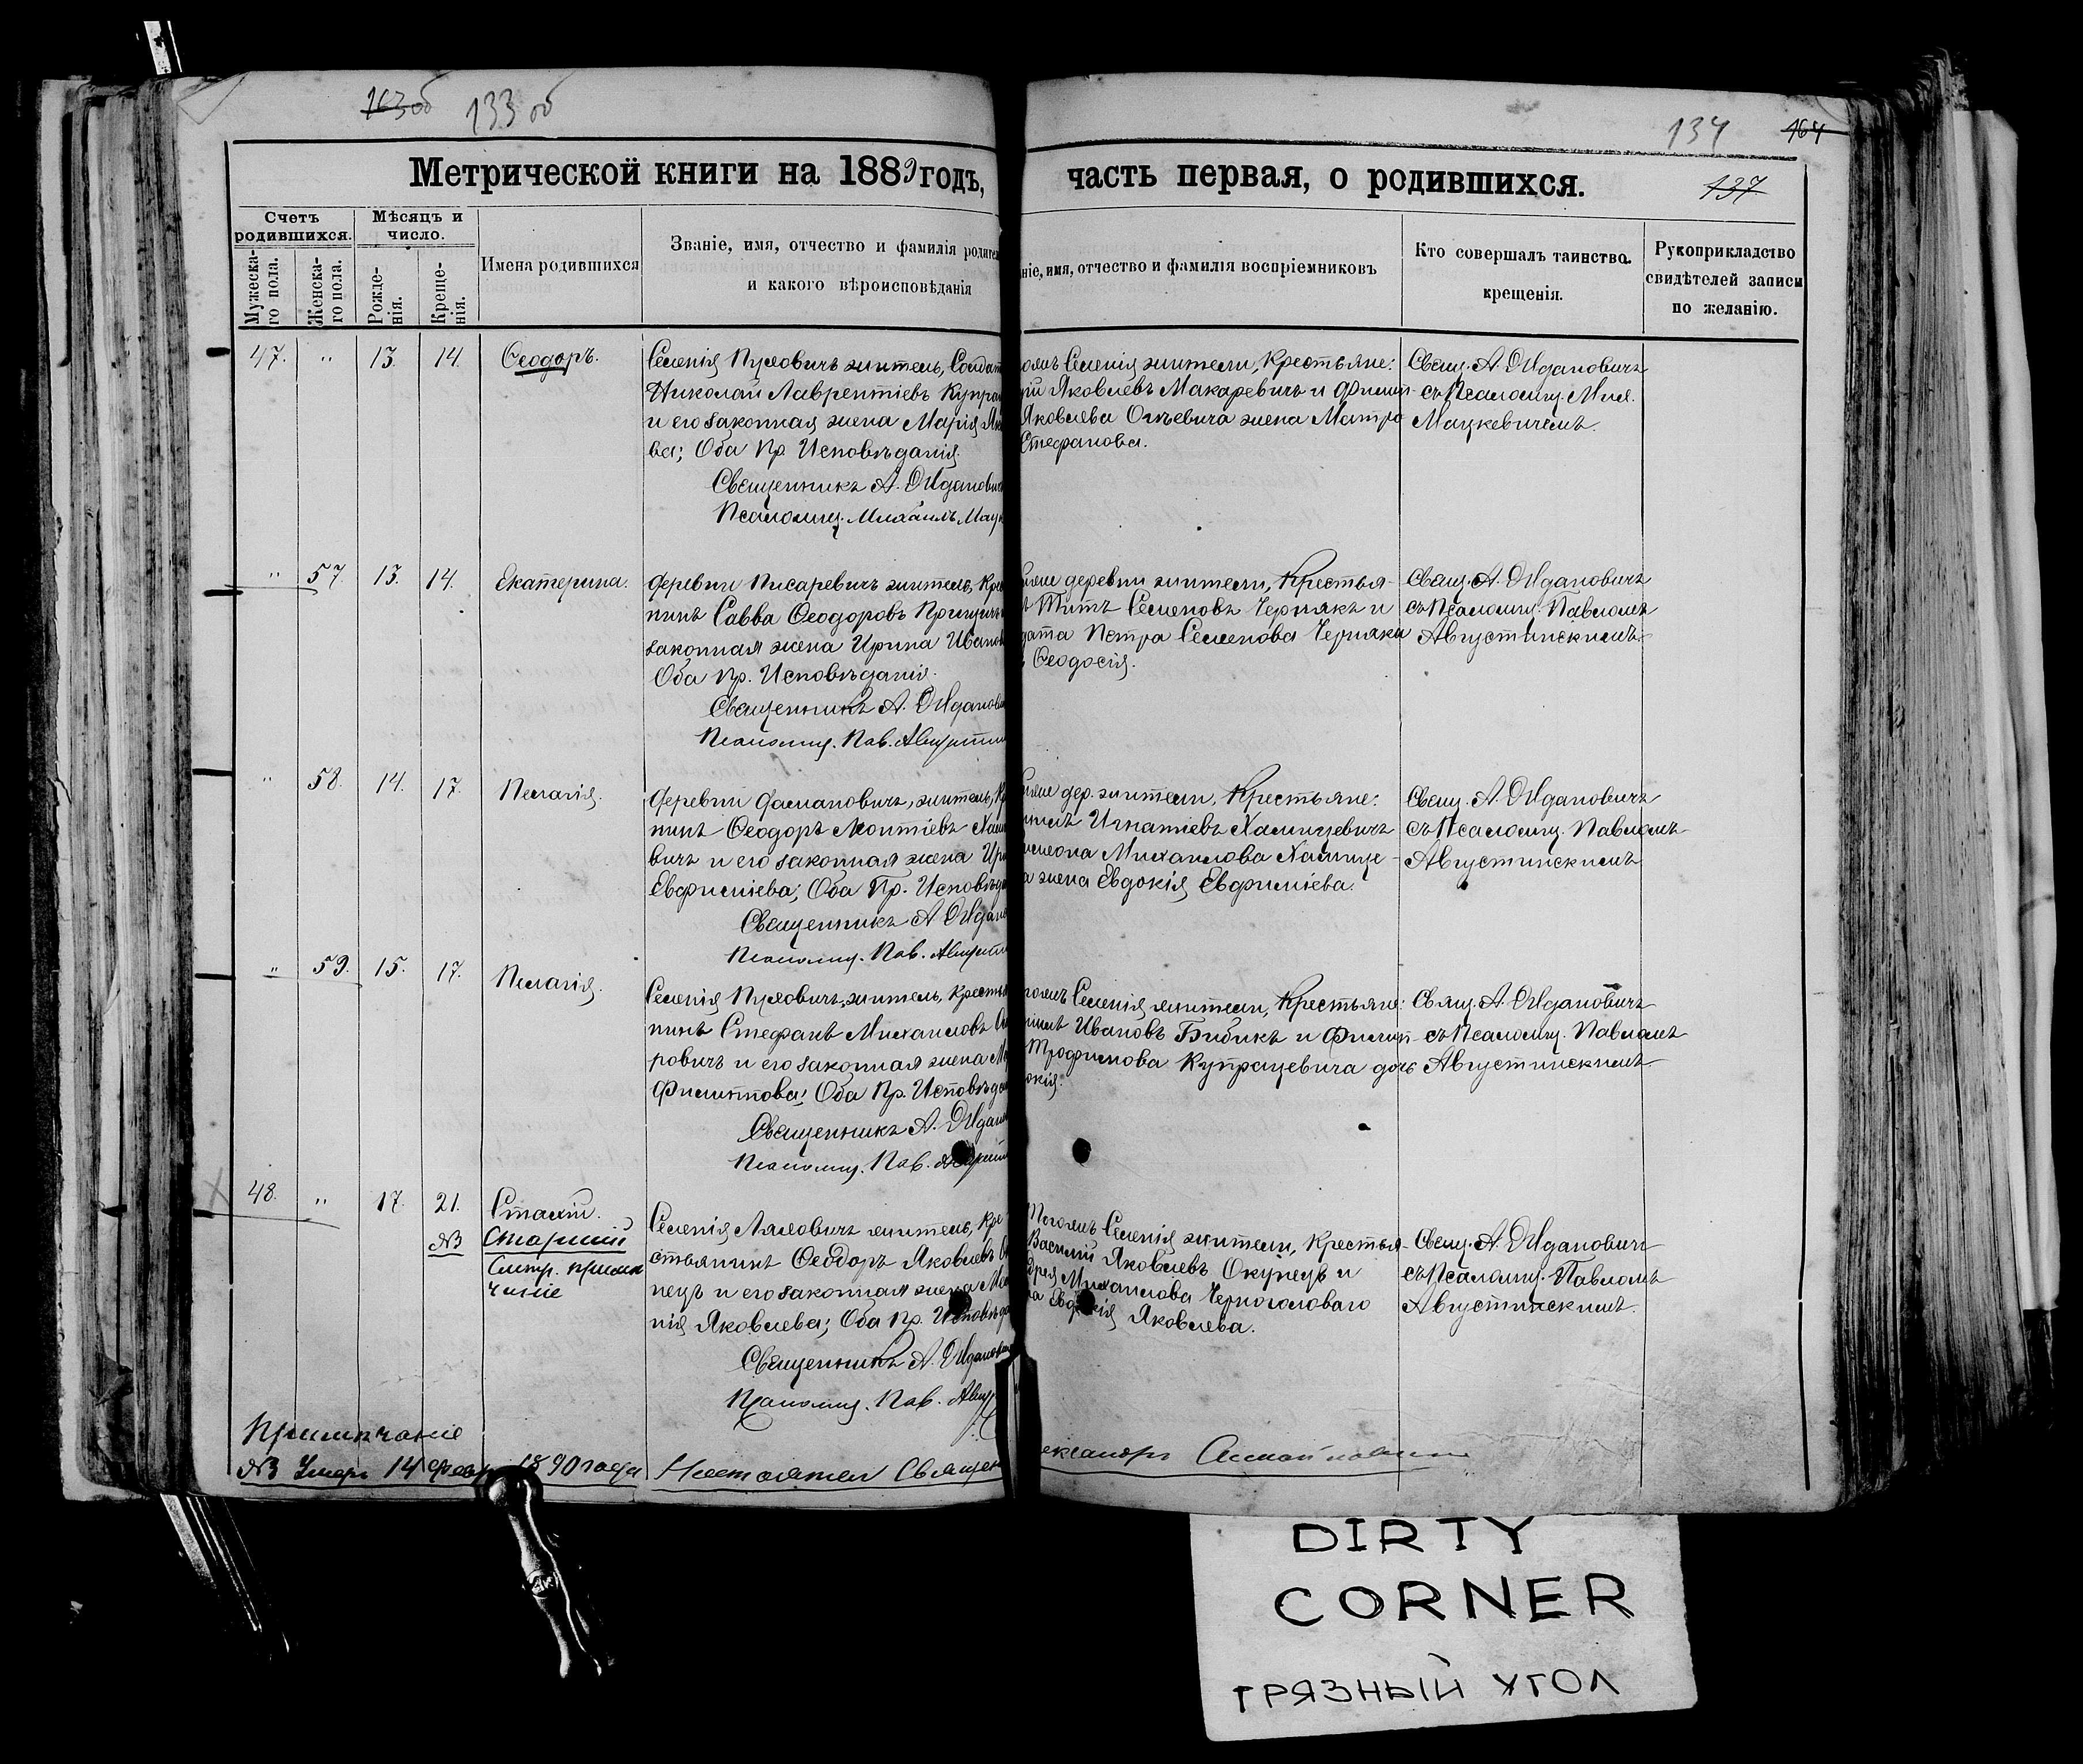 163об 133 об
134 164
137
Метрической книги на 1889 годъ, часть первая, о родившихся.
Счетъ родившихся.
Мѣсяцъ и число.
Мужеска-го пола.
Женска-го пола.
Рожде-нія.
Креще-нія.
Имена родившихся
Званіе, имя, отчество и фамилія родите
и какого вѣроисповѣданія
ніе, имя, отчество и фамилія воспріемниковъ
Кто совершалъ таинство крещенія.
Рукоприкладство свидѣтелей записи по желанію.
47. " 13. 14. Ѳеодоръ.
Селенія Пуховичъ житель, Солдат
Николай Лаврентіевъ Купра
и его законная жена Марія Як
ва; Оба Пр. Исповѣданія.
Священникъ А. Жданович
Псаломщ. Михаилъ Мацк
омъ Селенія жители, Крестьяне:
рій Яковлевъ Макаревичъ и Филип-
Яковлева Огиевича жена Матро
Стефанова.
Свящ. А. Ждановичъ
съ Псаломщ. Мих.
Мацкевичемъ.
" 57. 13. 14. Екатерина.
Деревни Писаревичъ житель, Кре
нинъ Савва Ѳеодоровъ
законная жена Ирина Иванов
Оба Пр. Исповѣданія.
Священникъ А. Жданови
Псаломщ. Пав. Августин
деревни жители, Крестья-
Титъ Семеновъ Чернякъ и
дата Петра Семенова Черняка
Ѳеодосія.
Свящ. А. Ждановичъ
съ Псаломщ. Павломъ
Августинскимъ
" 58. 14. 17. Пелагія.
Деревни Дамановичъ, житель, Кр
нинъ Ѳеодоръ Леонтіевъ Хами
вичъ и его законная жена Ири
Евфиміева; Оба Пр. Исповѣда
Священникъ А. Ждано
Псаломщ. Пав. Августи
дер. жители, Крестьяне:
Игнатіевъ Хамицевичъ
имеона Михаилова Хамице-
а жена Евдокія Евфиміева.
Свящ. А. Ждановичъ
съ Псаломщ. Павломъ
Августинскимъ
" 59. 15. 17. Пелагія.
Селенія Пуховичъ, житель, Кресть
нинъ Стефанъ Михаиловъ
ровичъ и его законная жена Ма
Филиппова; Оба Пр. Исповѣда
Священникъ А. Ждан
Псаломщ. Пав. Августи
Селенія жители, Крестьяне:
Ивановъ Бибикъ и Филип-
Трофимова Купрацевича дочь
окія.
Свящ. А. Ждановичъ
съ Псаломщ. Павломъ
Августинскимъ
48. " 17. 21. Стахій.
NB
Смотр. примѣ
чаніе
Селенія Ляховичъ житель, Кре
стьянинъ Ѳеодоръ Яковлевъ Ок
нецъ и его законная жена
нія Яковлева; Оба Пр. Исповѣда
Священникъ А. Жданови
Псаломщ. Пав. Авгус
Тогожъ Селенія жители, Крестья-
Василій Яковлевъ Окунецъ и
дрея Михаилова Черноголоваго
на Евдокія Яковлева.
Свящ. А. Ждановичъ
съ Псаломщ. Павломъ
Августинскимъ.
Примѣчаніе
NB Умеръ 14 Февр. 1890 года Настоятель Священ
ександръ
DIRTY
CORNER
ГРЯЗНЫЙ УГОЛ